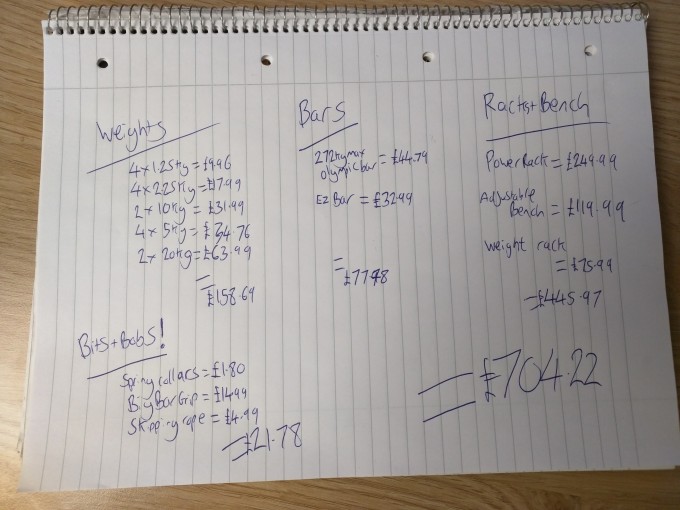 Weights
4 x 1.25kg = £9.96
4 x 2.25kg = £17.99
2 x 10kg = £31.99
4 x 5kg = £34.76
2 x 20kg = £63.99
= £158.69
Bars
272kg max
olympic bar = £44.79
EZ Bar = £32.99
= £77.78
Racks + Bench
Power Rack = £249.99
Adjustable
Bench = £119.99
weight rack
= £75.99
= £445.97
Bits + Bobs!
Spring collars = £1.80
Big Bar Grip = £14.99
Skipping rope = £4.99
= £21.78
= £704.22